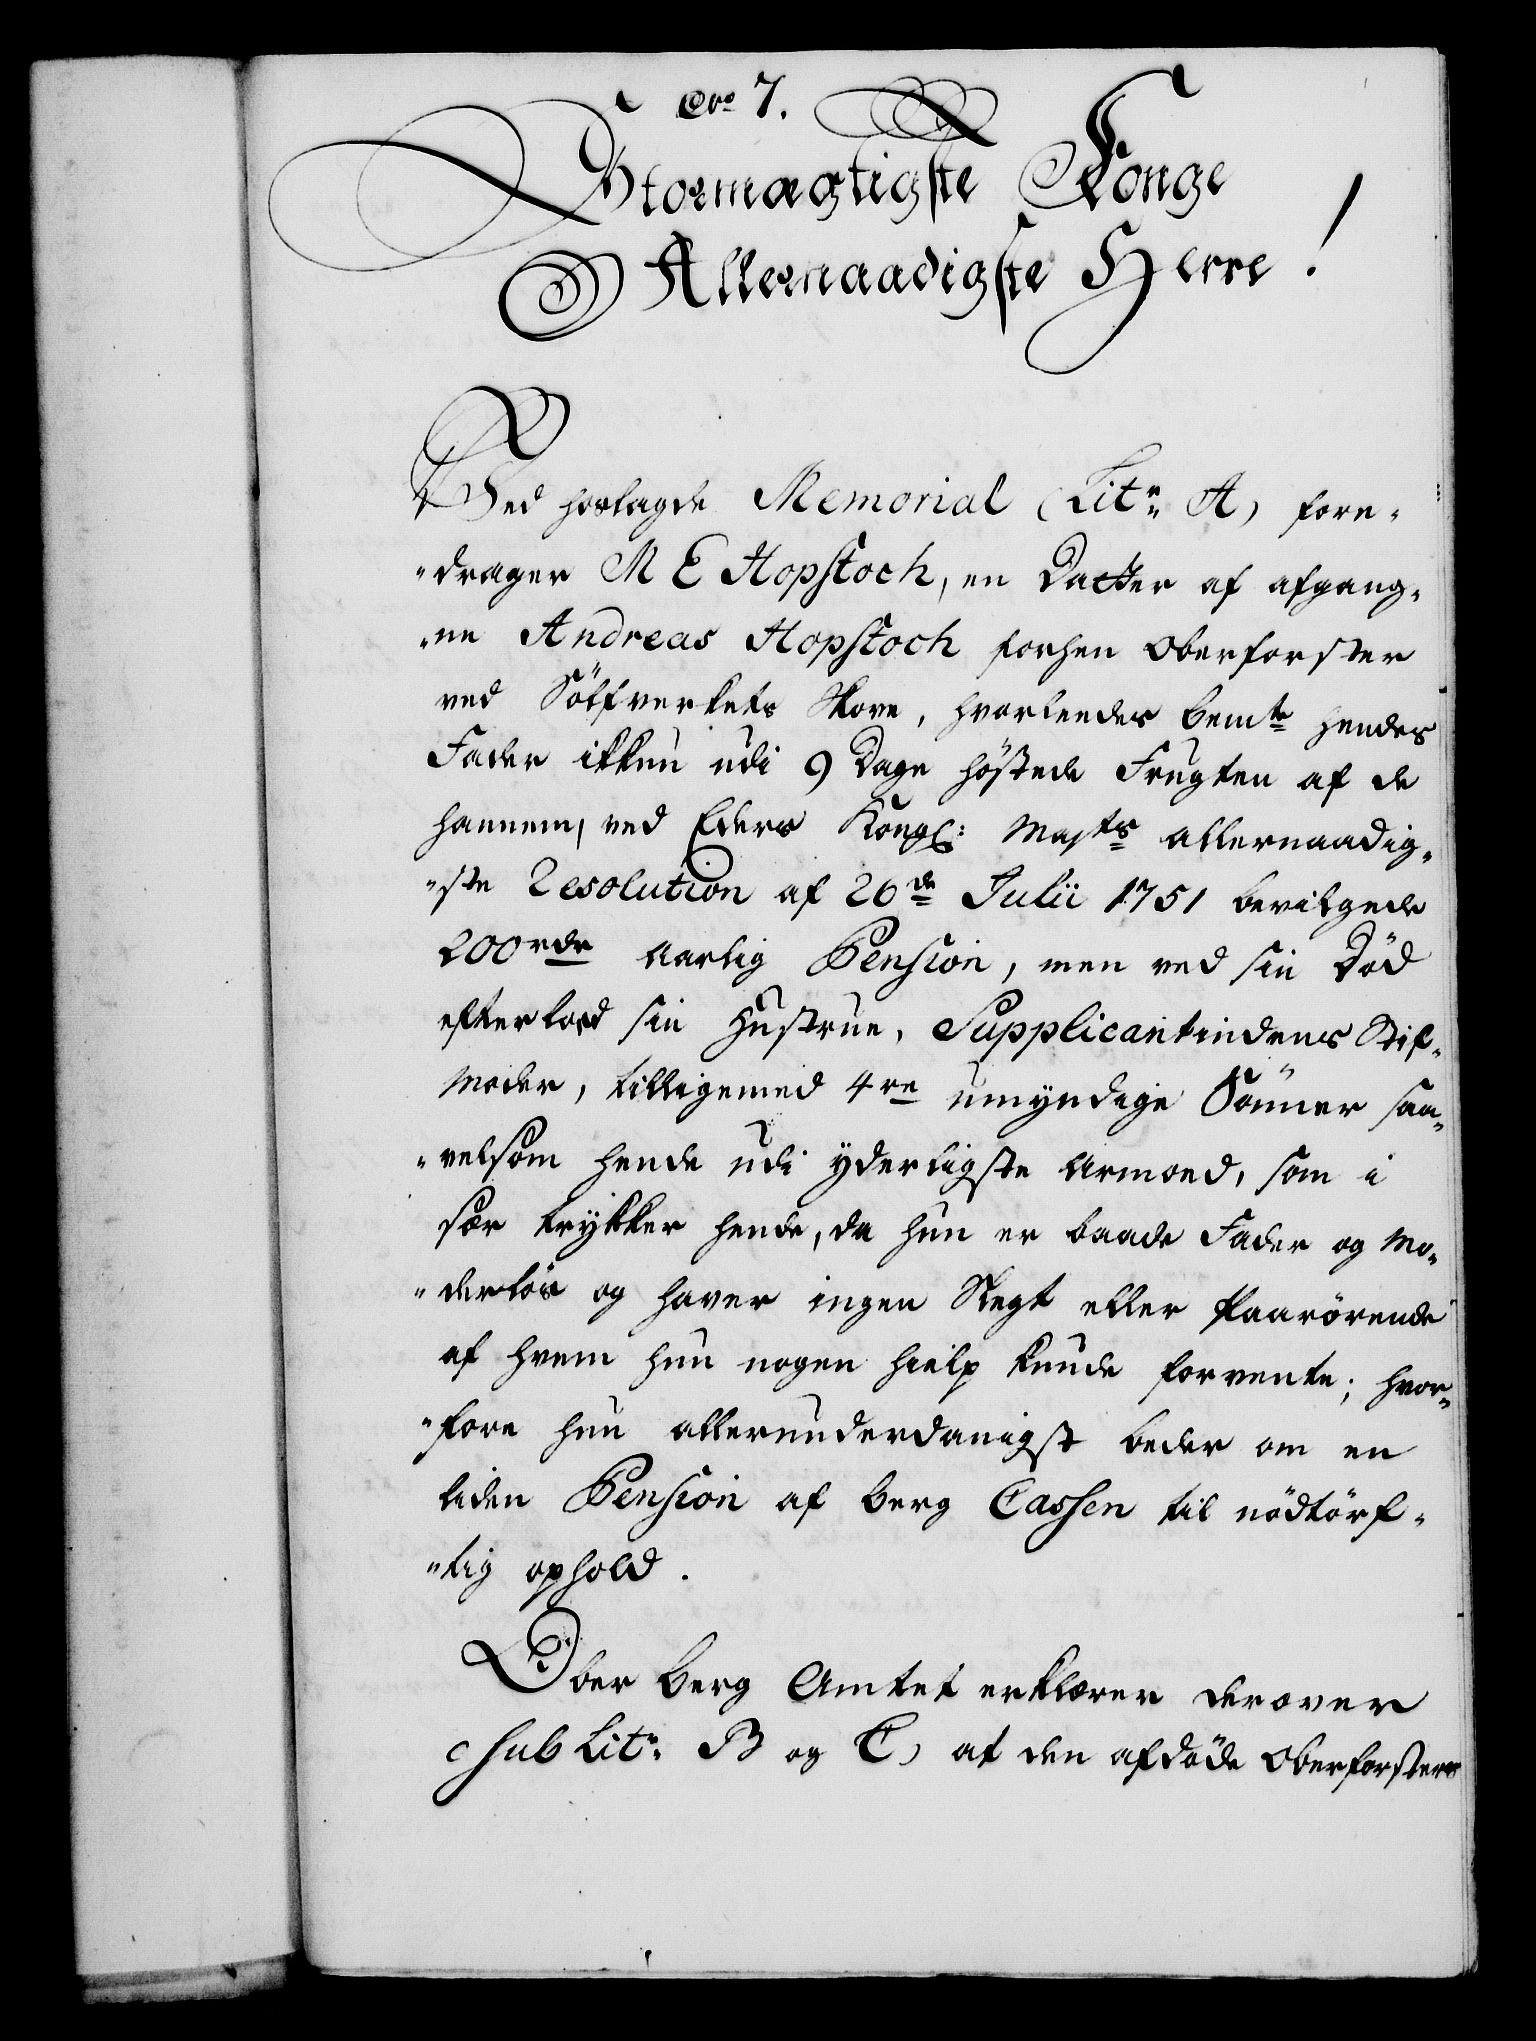 Nro 7.
Stormægtigste Konge
Allernaadigste Herre!
Ved hoslagde Memorial (Litr. A) fore-
"drager M E Hopstoch, en Datter af afgang-
"ne Andreas Hopstoch forhen Oberforster
ved Sölfverkets Skove, hvorleedes bemte hendes
Fader ikkun udi 9 Dage höstede Frugten af de
hannem, ved Eders Kongl: Mayts allernaadig-
"ste Resolution af 26de Julii 1751 bevilgede
200rdr aarlig Pension, men ved sin Död
efterlod sin Hustrue, Supplicantindens Stif-
moder, tilligemed 4re umyndige Sönner saa-
"velsom hende udi yderligste Armoed, som i
sær trykker hende, da hun er baade Fader og Mo-
"derlös og haver ingen Slegt eller Paarörende
af hvem hun nogen hielp kunde forvente; hvor-
"fore hun allerunderdanigst beder om en
liden Pension af Berg Cassen til nödtörf-
"tig ophold.
Ober Berg Amtet erklærer derover
(sub Litr. B og C) at den afdöde Oberforster